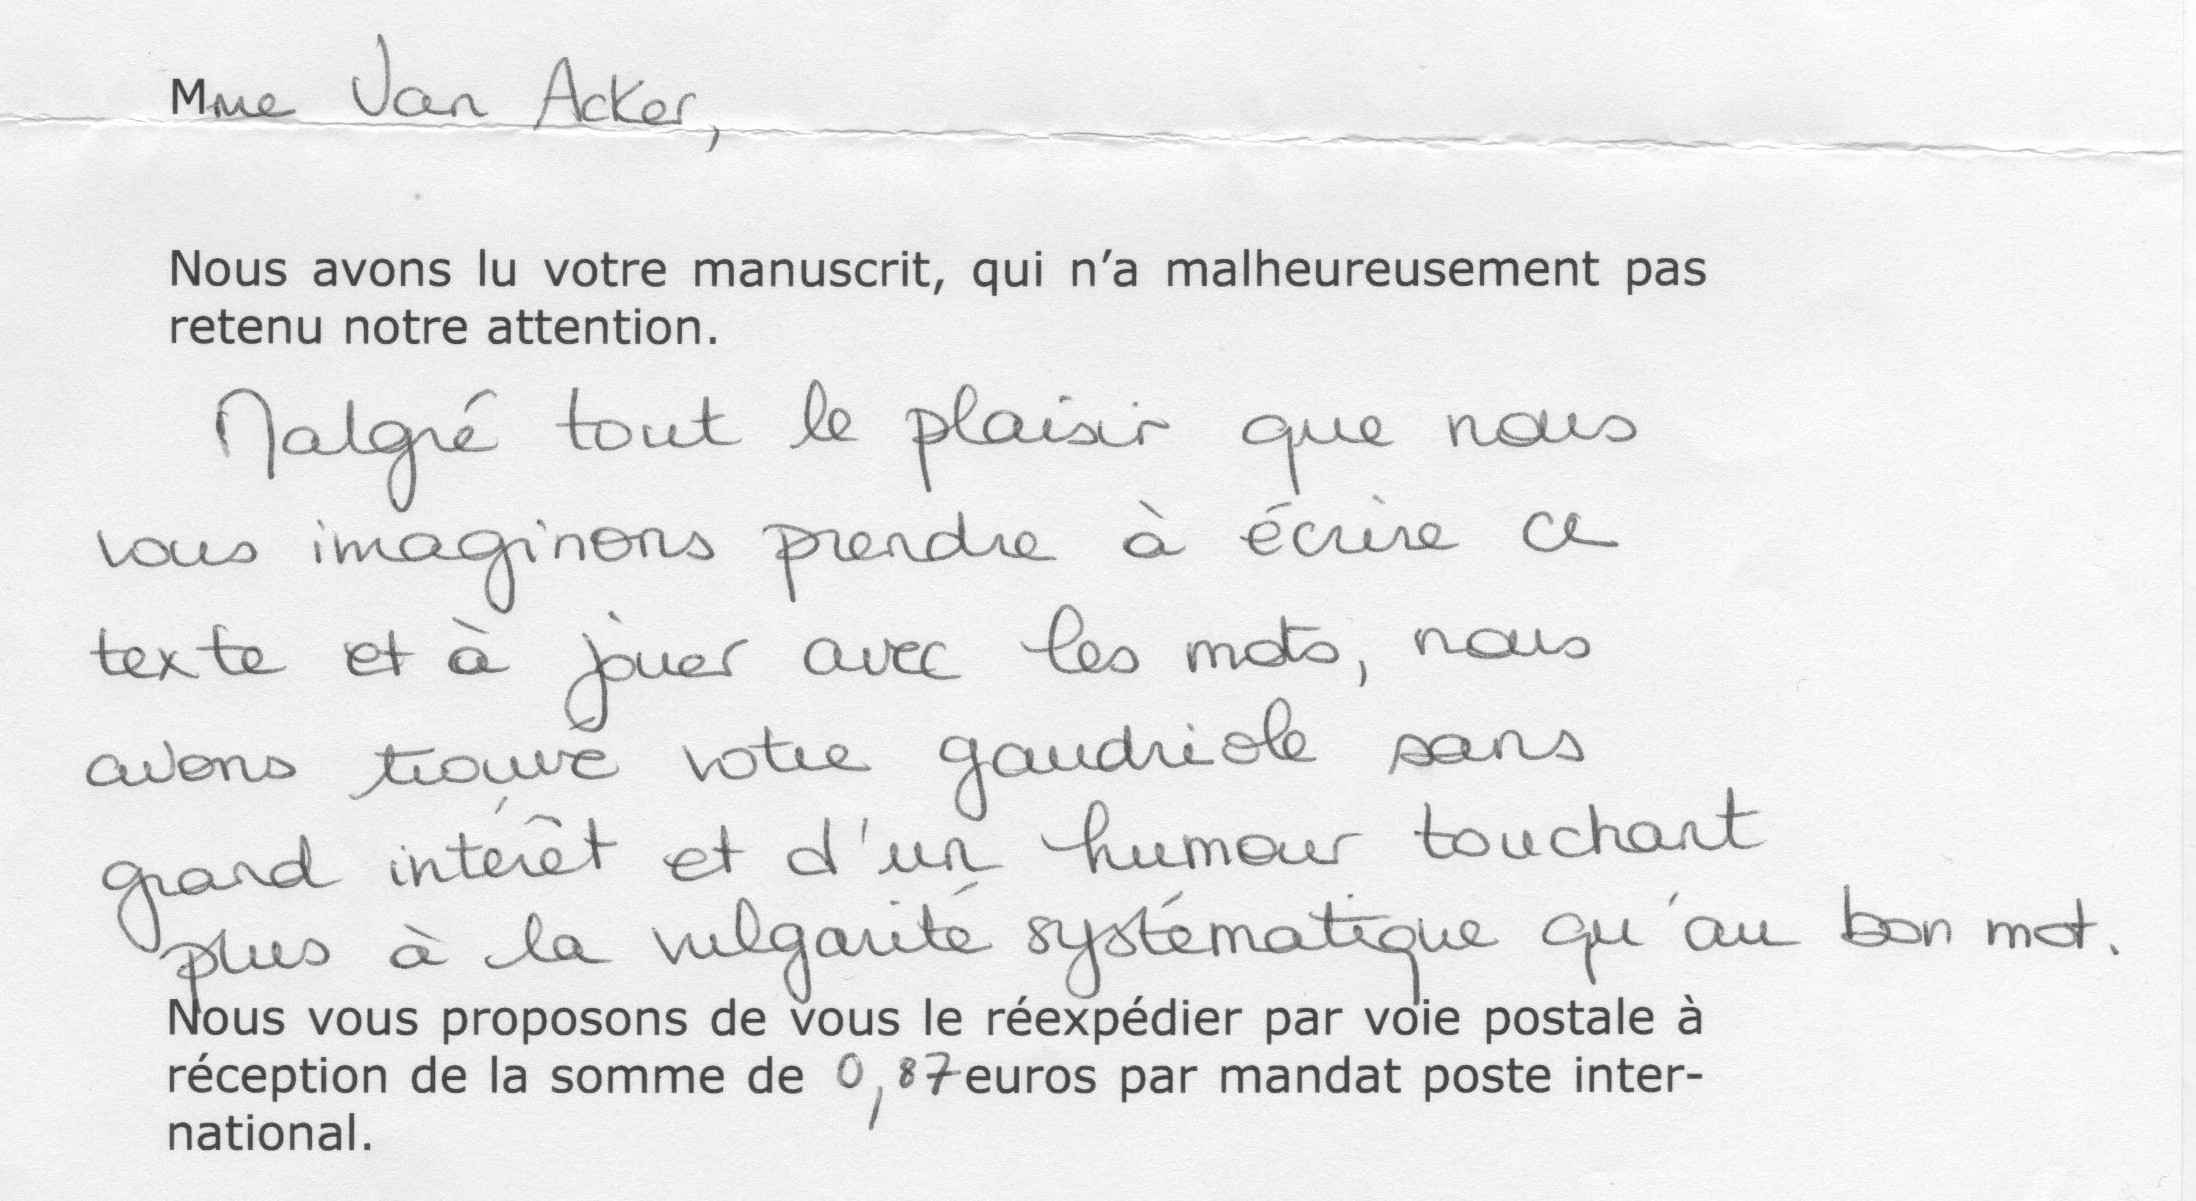 Mme Van Acker,
Nous avons lu votre manuscrit, qui n'a malheureusement pas
retenu notre attention.
Malgré tout le plaisir que nous
vous imaginons prendre à écrire ce
texte et à jouer avec les mots, nous
avons trouvé votre gaudriole sans
grand intérêt et d'un humour touchant
plus à la vulgarité systématique qu'au bon mot.
Nous vous proposons de vous le réexpédier par voie postale à
réception de la somme de 0,87 euros par mandat poste inter-
national.